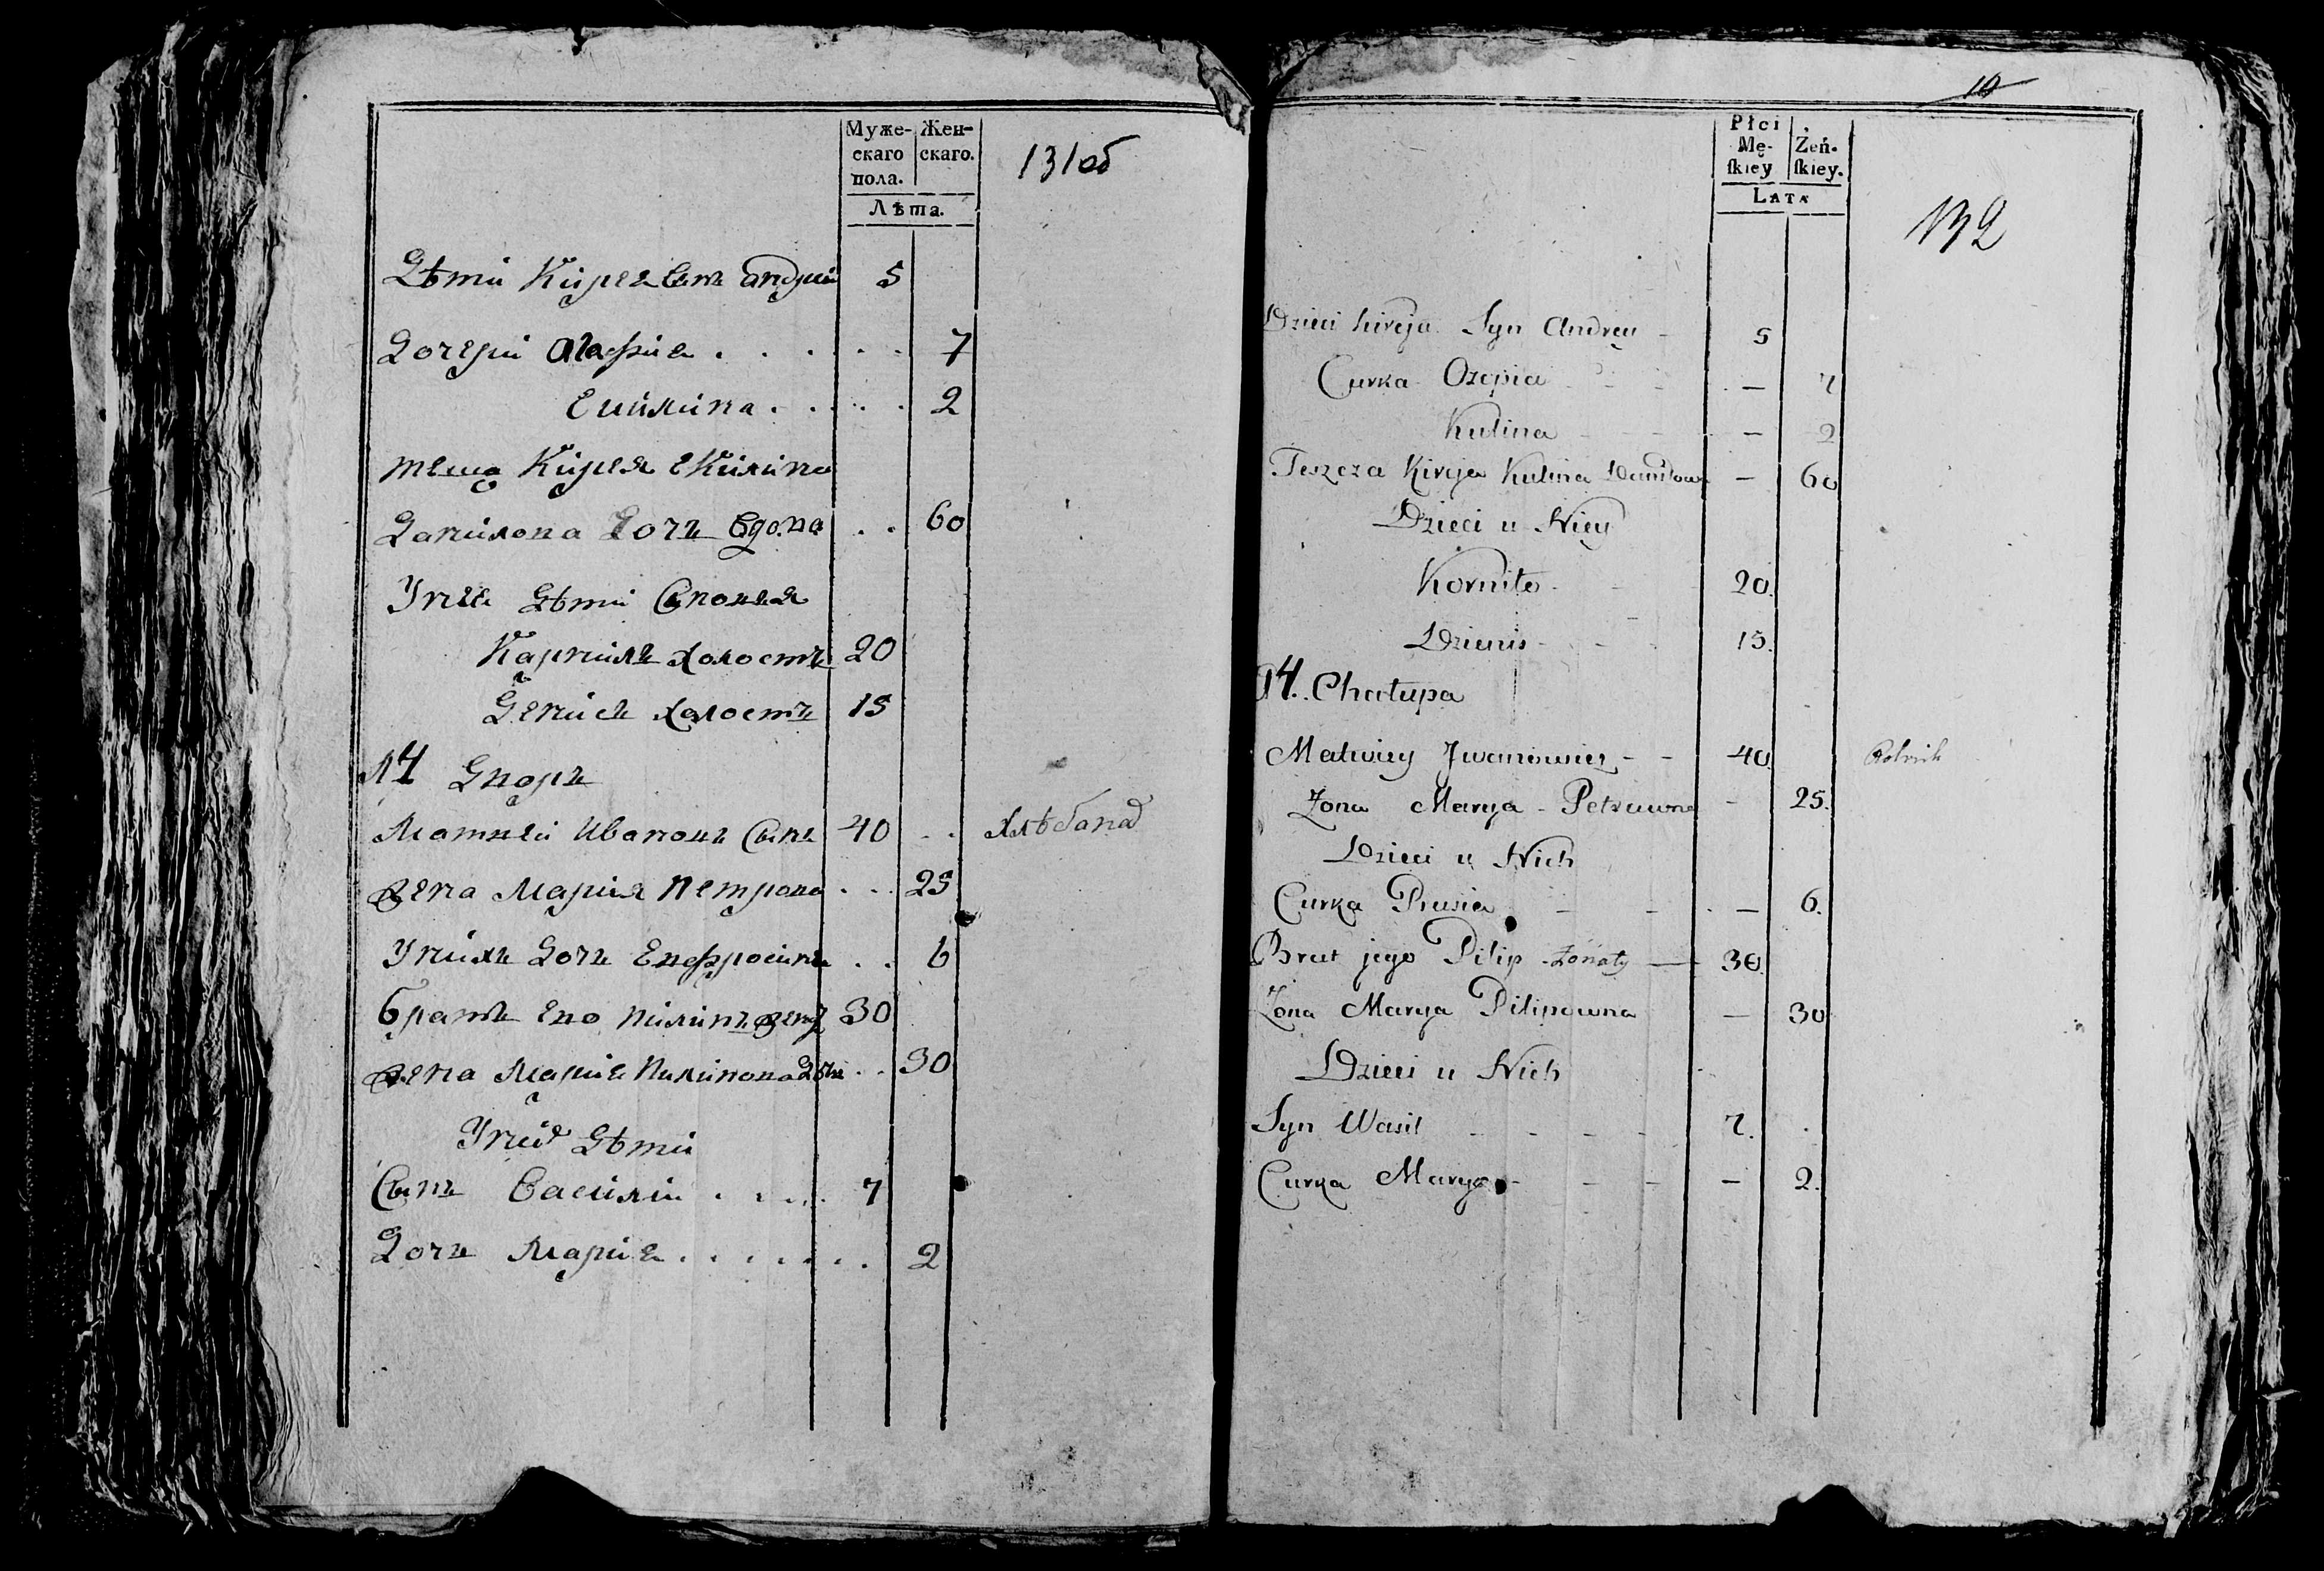 Муже-
скаго
пола.
Жен-
скаго.
Лѣта.
131об
Дѣти Кирея Сынъ андрии 5
Дочери Агафия 7
Екилина 2
теща Кирея Екилина
Данилова Дочь Вдова 60
Унея Дѣти Сыновья
Карнилъ холостъ 20
Денисъ холостъ 15
14 Дворъ
Матвеи Ивановъ Сынъ 40 хлѣбапа
жена Мария Петрова 25
Унихъ Дочь Евфросиня 6
братъ Ево Пилипъ женат 30
жена Мария Пилипова Дочь 30
Унихъ Дѣти
Сынъ Василии 7
Дочь Мария 2
10
Płci
Mę-
ſkiey
Żeń-
ſkiey.
LATA
132
Dzieci Kireja Syn Andrey 5
Curka Ozepia 7
Kulina 2
Teszcza Kireja Kulina Daniłowa 60
Dzieci u Niey
Korniło 20.
Dzienis 15.
14. Chałupa
Matwiey Jwanowicz 40 Rolnik
Żona Marya Petruwna 25.
Dzieci u Nich
Curka Prusia 6.
Brat jego Pilip żonaty 30.
Żona Marya Pilipowna 30
Dzieci u Nich
Syn Wasil 7.
Curka Marya 2.